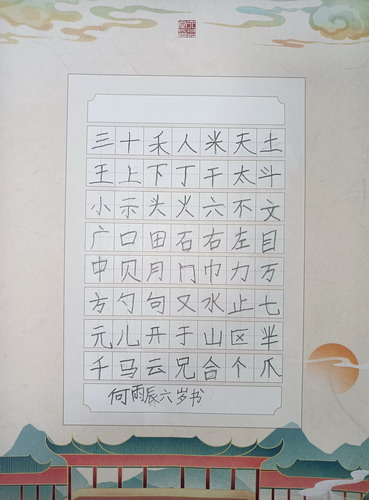 三十禾人米天土
王上下丁干太斗
小示头火六不文
广口田石右左目
中贝月门巾力万
方勺句又水止七
元儿开于山区半
千马云兄合个爪
何雨辰六岁书